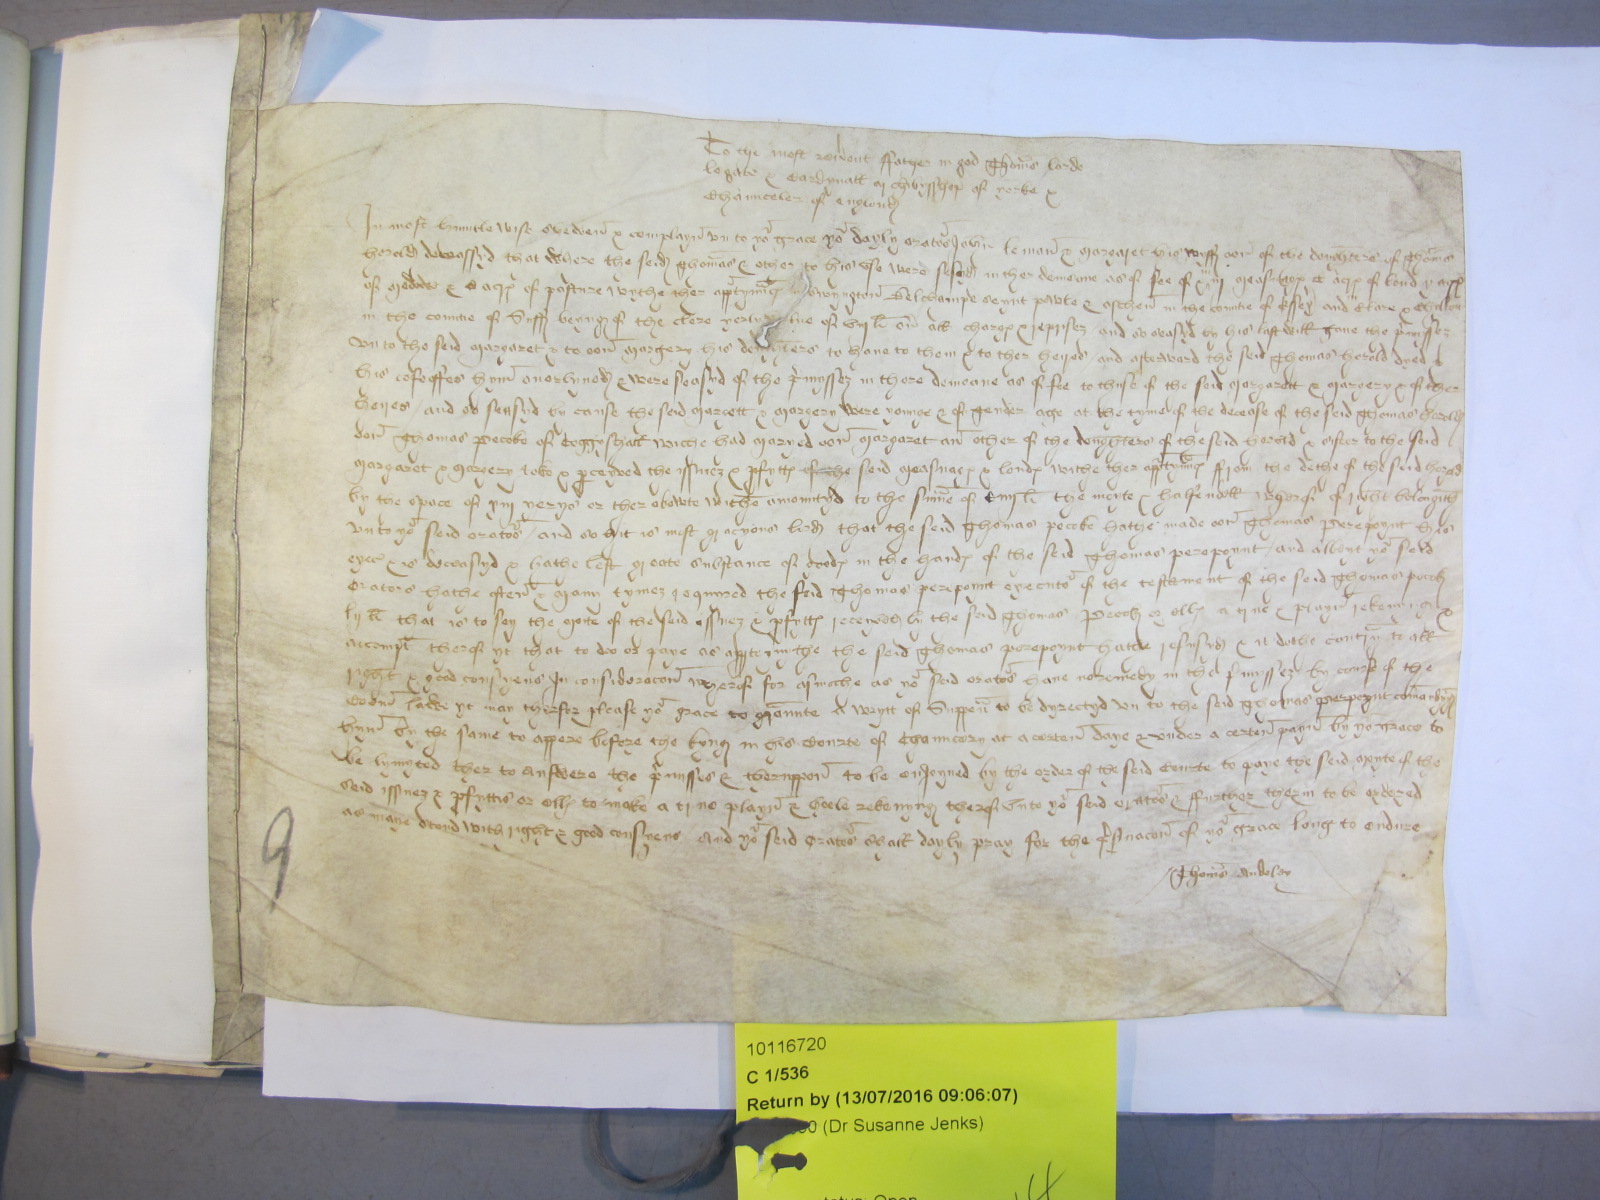 To the most rev'ent ffather in god Thom's lorde
legate & Cardynall archbysshop of yorke &
Chaunceler of englond
In most humble wise sheweth & complayn' vn to yor grace yor dayly orators John le man & Margaret his wyff oon of the doughters of Thom's
herold decessyd that where the seid Thomas & other to his vse were seasyd in ther demeane as of fee of iiij measuages C acrez of lond
of medowe & acrez of pasture wythe ther apprtyn'ncz in Belchampe seynt powle & in the countie of Essex and Clare &
in the countie of Suff' beyng of the clere yerly of ou' all chargez & reprisez and so seasyd by his last will gaue the p'myssez
vn to the seid Margaret & to oon Margery his doughters to haue to them & to ther heires and afterward the seid Thomas herold dyed
his cofeoffes hym ouerlyued & were seasyd of the p'myssez in there demeane as of fee to thuse of the seid Margarett & Margery & of ther
heires and so seasyd by cause the seid Margett & Margery were yonge & of tender age at the tyme of the decesse of the seid Thomas herold
oon Thomas Pecoke of Coggyshall wiche had maryed oon Margaret an other of the doughters of the seid herold & sister to the seid
Margaret & Margery toke & p'ceyved the yssuez & p'fyttz of the seid measuagez & londz withe ther apprtyn'ncz ffrom the dethe of the seid herold
by the space of yerys or ther abowte withe amountyd to the summe of the moyte & halfendell wherof of right belongith
vnto yor seid orators and so it is most gracyous lord that the seid Thomas pecoke hathe made oon Thomas Perepoynt his
exec' & is decessyd & hathe left greate substance of goodz in the handz of the seid Thomas perepoynt and albeit yor seid
Orators hathe often & many tymez requyred the seid Thomas perepoynt executor of the testament of the seid Thomas pecok
that is to sey the moyte of the seid yssuez & p'fyttz receyved by the seid Thomas Pecok or ellz a true & playn rekenyng &
accompt therof yt that to doo or paye as app'teynythe the seid Thomas perepoynt hathe refusyd & it dothe contr'y to all
right & good consyens In consideracon wherof for asmoche as yor seid orators haue no remedy in the p'myssez by course of the
Comen lawe yt may therfor please yor grace to graunte a wrytt of Suppena to be dyrectyd vn to the seid Thomas Perpoynt comaundyng
hym by the same to appere before the kyng in his Courte of Chauncery at a certen daye & vnder a certen payn by yor grace to
be lymyted ther to answere the p'misses & theruppon to be enioyned by the order of the seid Courte to paye the seid moyte of the
seid issuez & p'fyttis or ellz to make a true playn & hoole rekenyng therof vnto yor seid orators & ffurther therin to be ordered
as maye stond with right & good consyens And yor seid Orators shall dayly pray for the p's'uacon of yor grace long to endure
Thom's Audeley
9
10116720
C 1/536
Return by (13/07/2016 09:06:07)
(Dr Susanne Jenks)